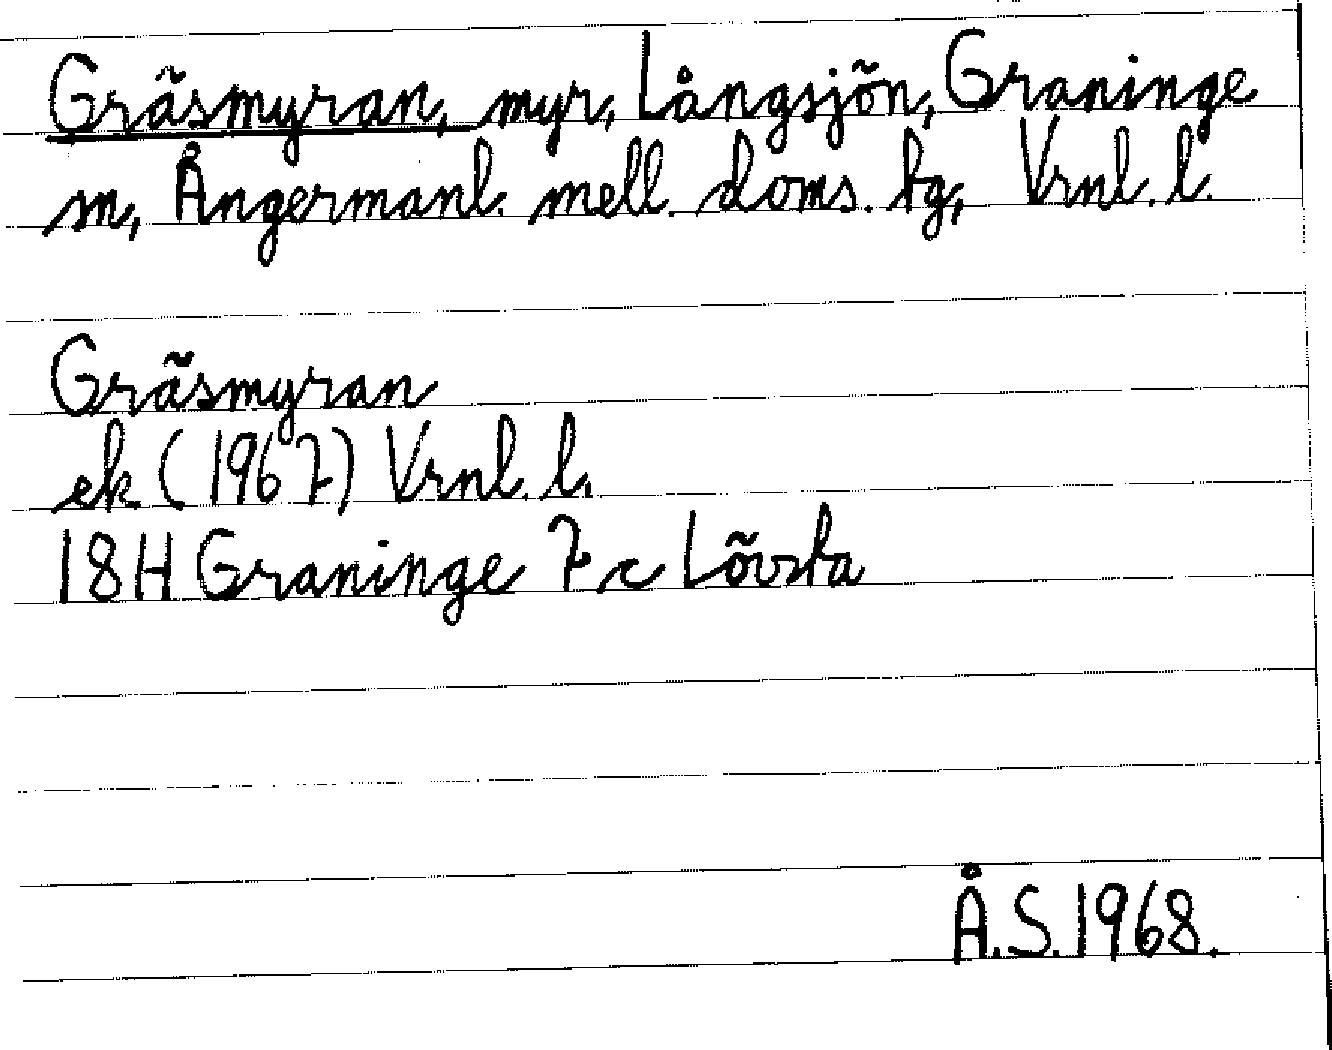 Gräsmyran, myr, Långsjön, Graninge
sn, Ångermanl. mell. doms. tg, Vrnl. l.
Gräsmyran
ek (1967) Vrnl. l.
18H Graninge 7 c Lövsta
Å.S. 1968.